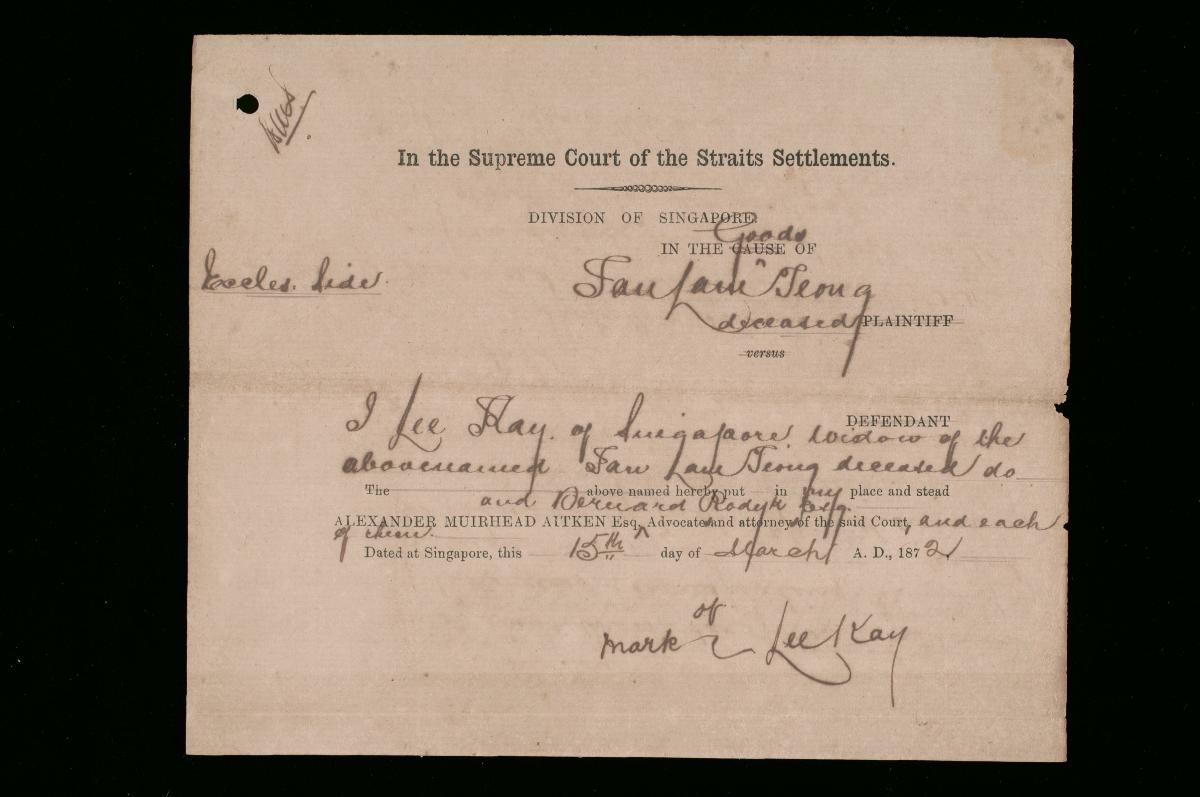 In the Supreme Court of the Straits Settlements.
DIVISION OF SINGAPORE.
Goods
IN THE CAUSE OF
Eccles. Side.
Tan Lam Teong
deceased PLAINTIFF
versus
DEFENDANT
I Lee Kay of Singapore widow of the
abovenamed Tan Lam Teong deceased do
The above named hereby put in my place and stead
and Bernard Rodyk Esq.
ALEXANDER MUIRHEAD AITKEN Esq. Advocate and attorney of the said Court, and each
of them.
Dated at Singapore, this 15th day of March A. D., 1872
of
mark Lee Kay